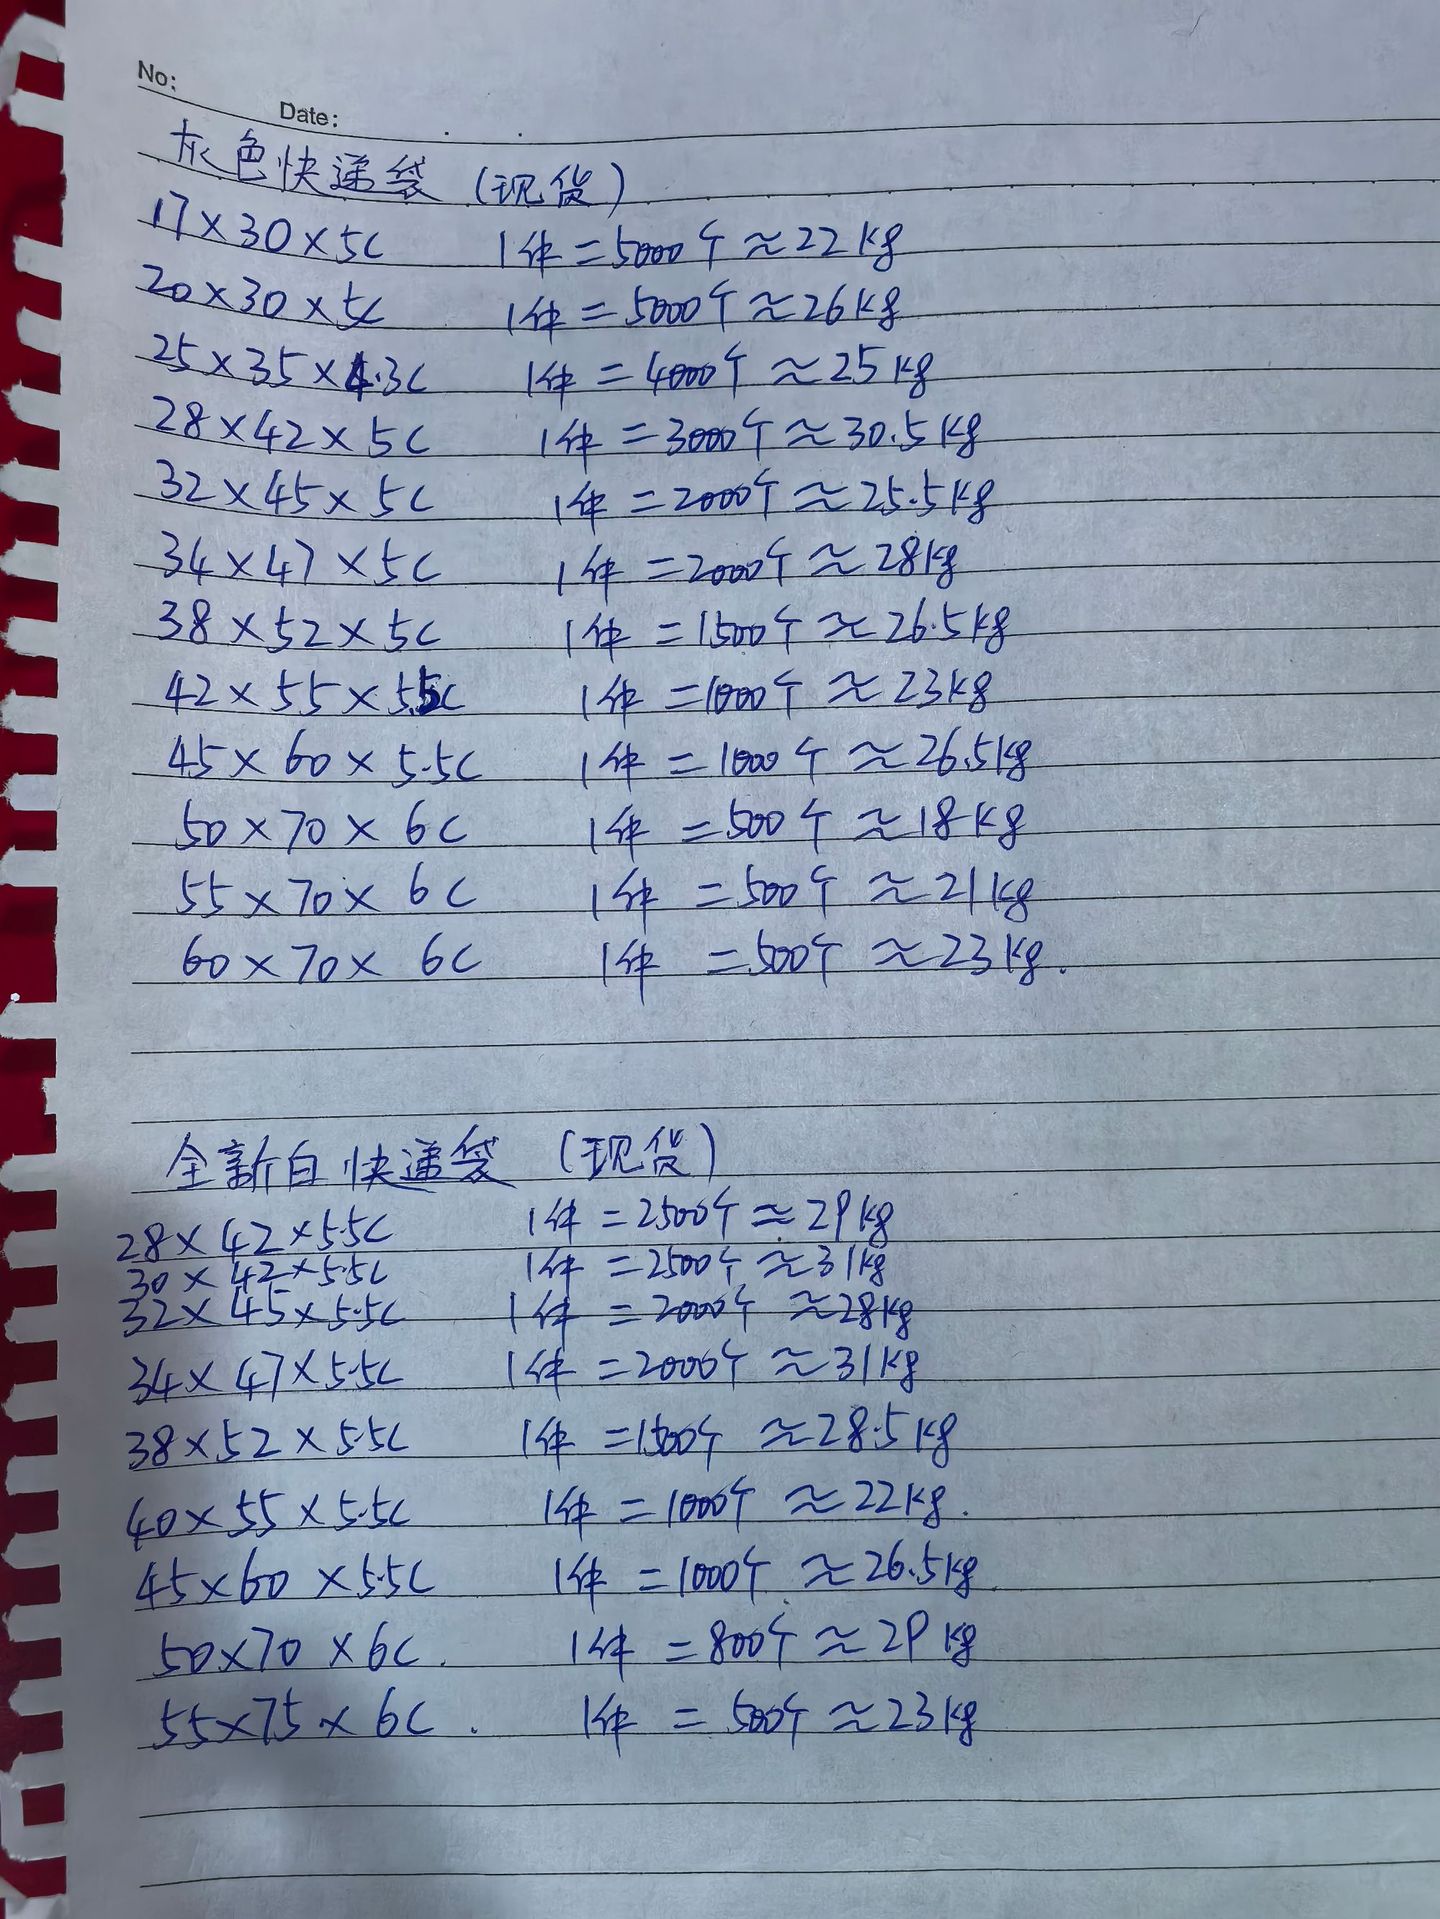 No:
Date:
灰色快递袋 (现货)
17×30×5C 1件=5000个≈22kg
20×30×5C 1件=5000个≈26kg
25×35×4.3C 1件=4000个≈25kg
28×42×5C 1件=3000个≈30.5kg
32×45×5C 1件=2000个≈25.5kg
34×47×5C 1件=2000个≈28kg
38×52×5C 1件=1500个≈26.5kg
42×55×5.5C 1件=1000个≈23kg
45×60×5.5C 1件=1000个≈26.5kg
50×70×6C 1件=500个≈18kg
55×70×6C 1件=500个≈21kg
60×70×6C 1件=500个≈23kg.
全新白快递袋 (现货)
28×42×5.5C 1件=2500个≈29kg
30×42×5.5C 1件=2500个≈31kg
32×45×5.5C 1件=2000个≈28kg
34×47×5.5C 1件=2000个≈31kg
38×52×5.5C 1件=1500个≈28.5kg
40×55×5.5C 1件=1000个≈22kg.
45×60×5.5C 1件=1000个≈26.5kg.
50×70×6C. 1件=800个≈29kg
55×75×6C. 1件=500个≈23kg